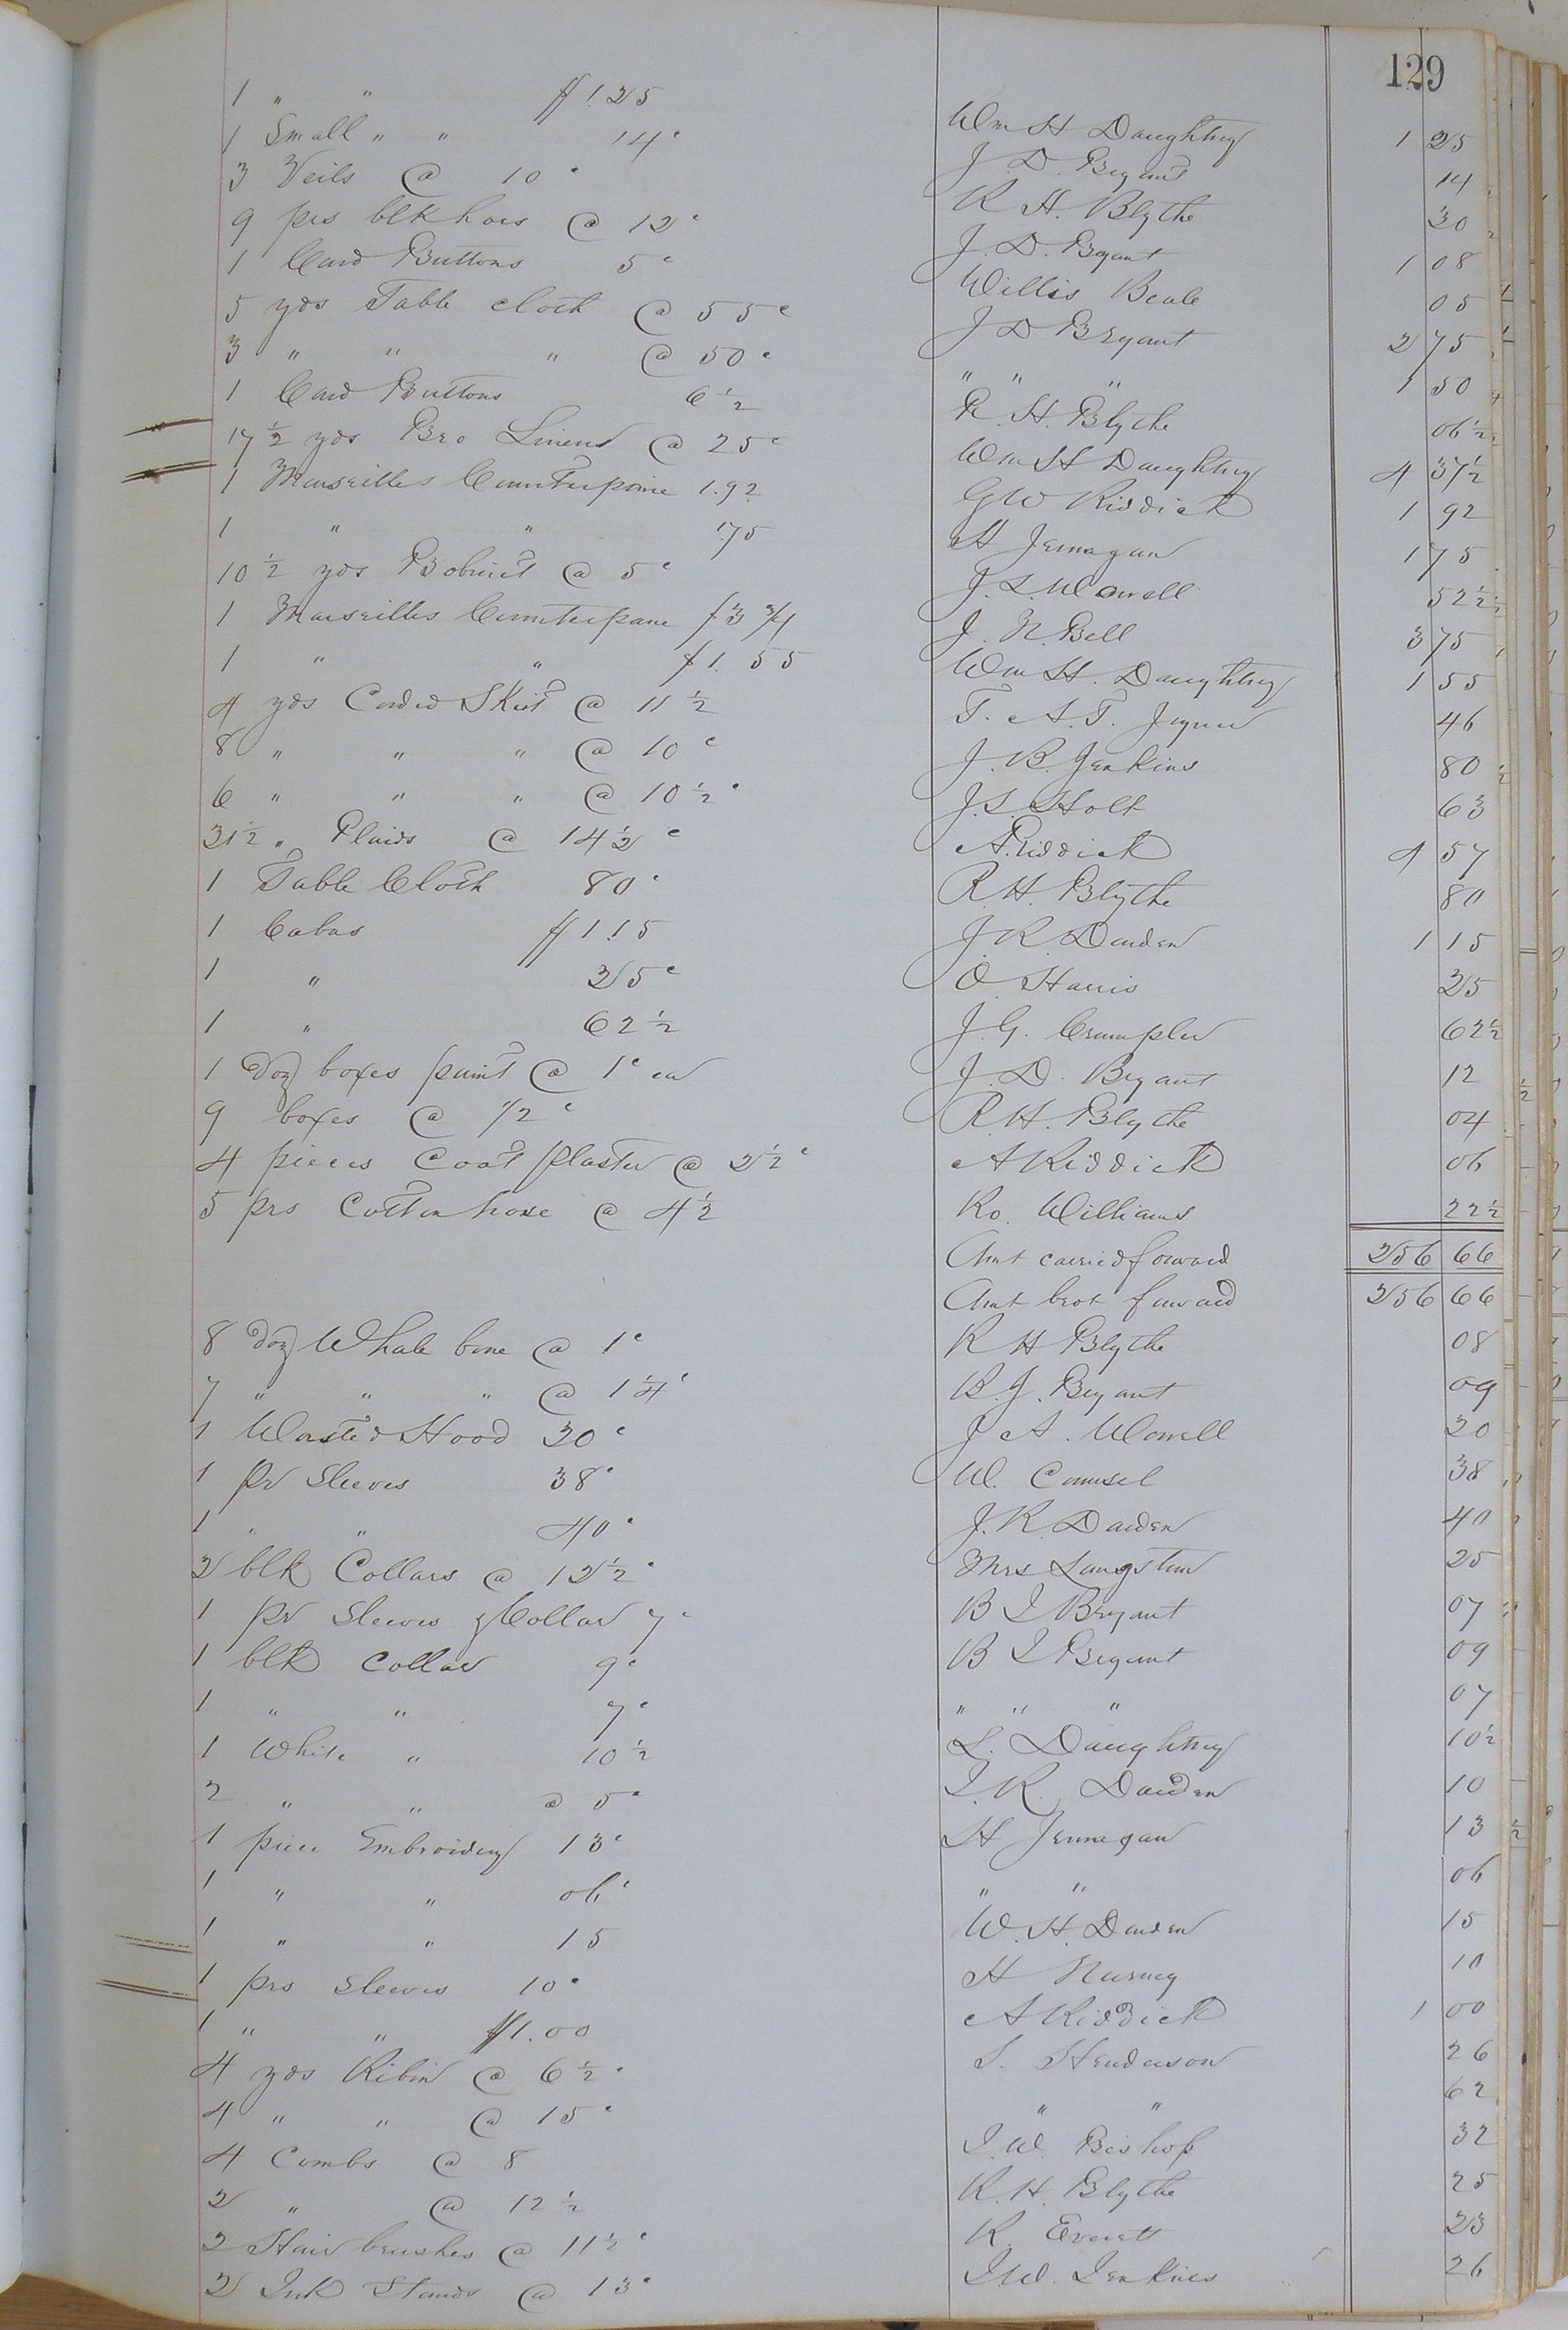 129
1 " " $1.25 Wm H Daughtrey 1 25
1 Small " " 14c J. D. Bryant 14
3 Veils @ 10c R H. Blythe 30
9 prs blk hose @ 12c J. D. Bryant 1 08
1 Card Buttons 5c Willis Beale 05
5 yds Table cloth @ 55c J D Bryant 2 75
3 " " " @ 50c " " " 1 50
1 Card Buttons 6 1/2 R. H. Blythe 06 1/2
17 1/2 yds Bro Linend @ 25c Wm H Daughtrey 4 37 1/2
1 Marseilles Counterpaine 1.92 G W Riddick 1 92
1 " " 1.75 H Jernagan 1 75
10 1/2 yds Bobinet @ 5c J. L. Worrell 52 1/2
1 Marseilles Counterpane $3 3/4 J. N. Bell 3 75
1 " " $1.55 Wm H. Daughtrey 1 55
4 yds Corded Skirt @ 11 1/2 T. A. T. Joyner 46
8 " " " @ 10c J. B. Jenkins 80
6 " " " @ 10 1/2c J. S Holt 63
31 1/2 " Plaids @ 14 1/2c A. Riddick 4 57
1 Table Cloth 80c R. H. Blythe 80
1 Cabas $1.15 J. R. Darden 1 15
1 " 25c O. Harris 25
1 " 62 1/2 J. G. Crumpler 62 1/2
1 doz boxes paint @ 1c ea J. D. Bryant 12
9 boxes @ 1/2c R. H. Blythe 04
4 pieces Coat plaster @ 2 1/2c A Riddick 06
5 prs Cotton hose @ 4 1/2 Ro. Williams 22 1/2
Amt carried forward 256 66
Amt brot forward 256 66
8 doz Whale bone @ 1c R H Blythe 08
7 " " " @ 1 1/4c B. J. Bryant 09
1 Worsted Hood 30c J A. Worrell 30
1 Pr Sleeves 38c W. Council 38
1 " " 40c J. R. Darden 40
2 blk Collars @ 12 1/2c Mrs Langston 25
1 pr Sleeves & Collar 7c B J Bryant 07
1 blk Collar 9c B J Bryant 09
1 " " 7c " " " 07
1 White " 10 1/2 L. Daughtrey 10 1/2
2 " " @ 5c J. R. Darden 10
1 piece Embroidery 13c H Jernagan 13
1 " " 06c " " 06
1 " " 15 W. H. Darden 15
1 prs Sleeves 10c H Nurney 10
1 " " $1.00 A Riddick 1 00
4 yds Ribin @ 6 1/2c S. Henderson 26
4 " " @ 15c " " 62
4 Combs @ 8 J. W. Bishop 32
2 " @ 12 1/2 R. H. Blythe 25
2 Hair brushes @ 11 1/2c R. Everett 23
2 Ink Stands @ 13c J. W. Jenkins 26